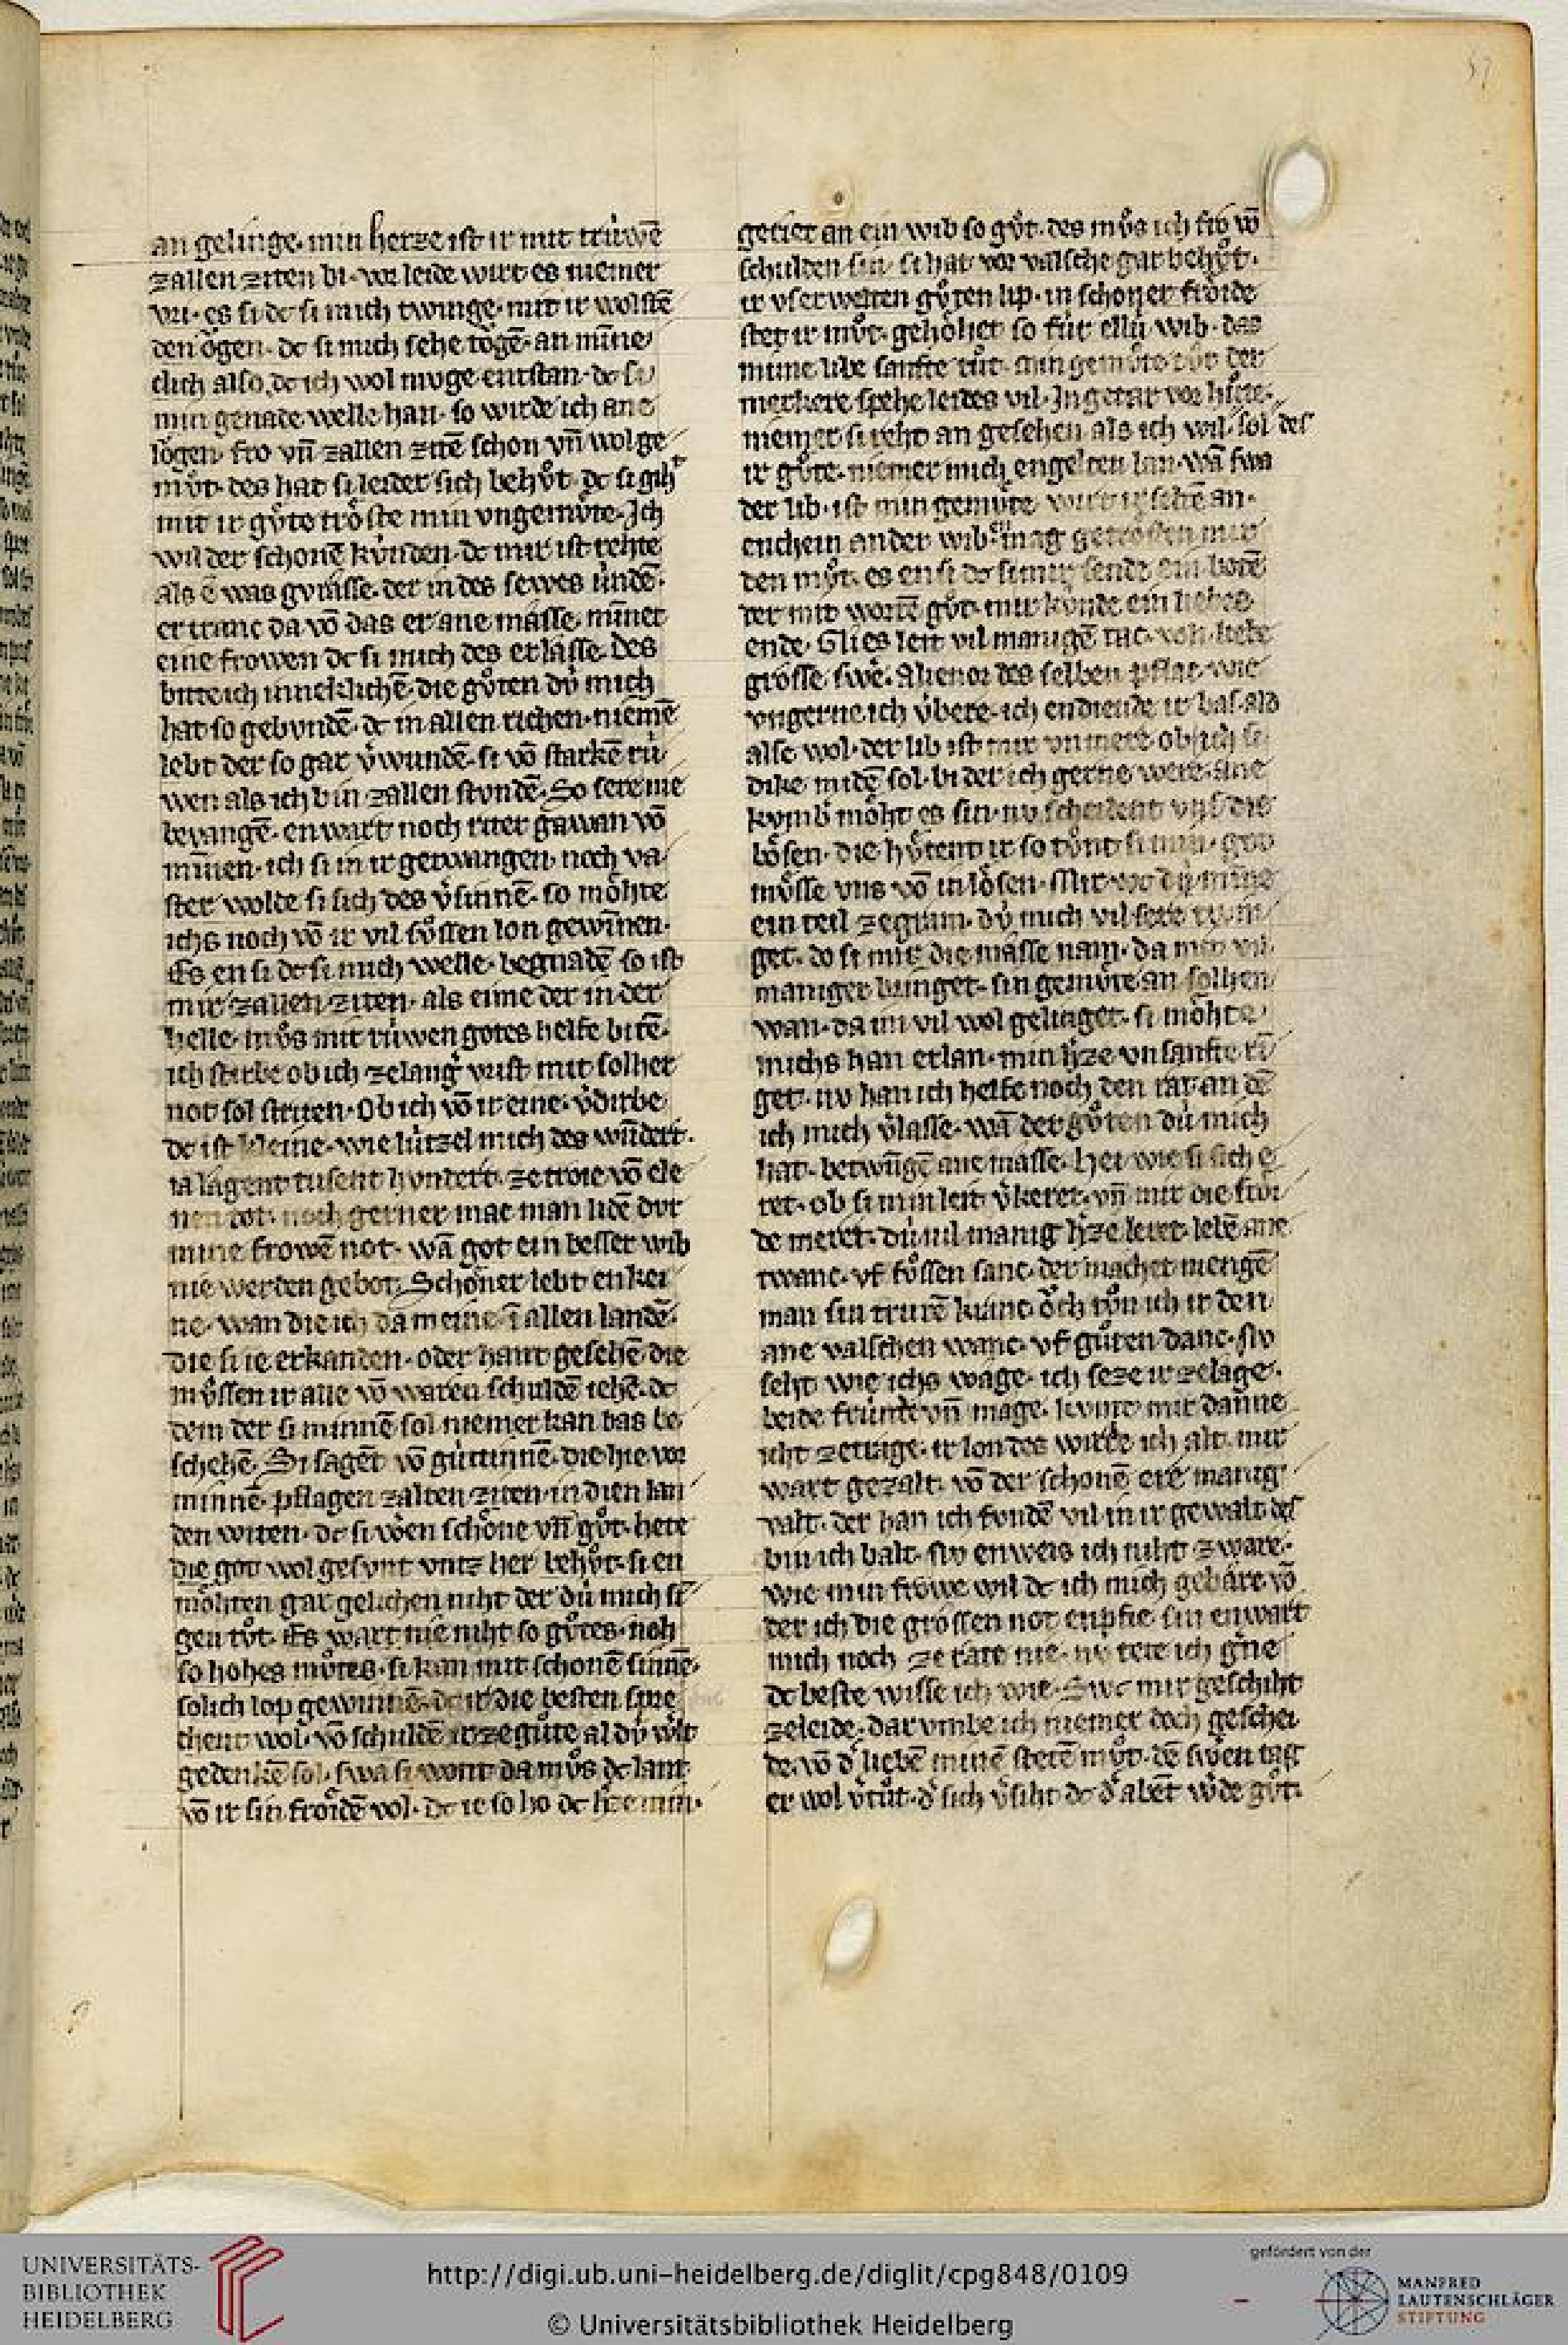 57
an gelinge· min herze ist ir mit trúwē
zallen ziten bi· vor leide wirt es niemer
vri· es si dc si mich twinge· mit ir wolstē
den ŏgen· dc si mich sehe tŏgē· an minne
clich also dc ich wol muge entstan· dc si
min genade welle han· so wirde ich ane
lŏgen· fro vn̄ zallen zitē schon vn̄ wol ge
mv̊t· des hat si leider sich behv̊t· dc si giht
mit ir gv̊te trŏste min vngemv̊te· Ich
wil der schonē kv́nden· dc mir ist rehte
als ē was
er tranc da vō das er ane masse· minnet
eine frowen dc si mich des erlasse· des
bitte ich inneklichē· die gv̊ten dv́ mich
hat so gebvndē· dc in allen richen· niemē
lebt der so gar v̓wundē· si vō starkē rú
wen als ich bin zallen stvndē· So sere nie
bevangē· enwart noch riter gawan vō
minnen· ich si in ir getwangen· noch va
ster wolde si sich des v̓sinnē· so mŏhte
ichs noch vō ir vil sv̊ssen lon gewinnen·
Es en si dc si mich welle· begnadē so ist
mir zallen ziten· als eime der in der
helle· mv̊s mit rúwen gotes helfe bitē·
ich stirbe ob ich zelang vrist mit solher
not sol striten· Ob ich vō ir eine· v̓dirbe
dc ist kleine· wie lútzel mich des wundert·
ia lagent tusent hvndert· ze troie vō ele
nen tot· noch gerner mac man lidē dvr
mine frowē not· wā got ein besser wib
nie werden gebot· Schŏner lebt enkei
ne· wan die ich da meine· ī allen landē·
die si ie erkanden· oder hant gesehē die
mv̊ssen ir alle vō waren schuldē iehē· dc
dem der si minnē sol niemer kan bas be
schehē· Si sagēt vō gúttinnē· die hie vor
minnē· pflagen zalten ziten· in dien lan
den witen· dc si wēn schŏne vn̄ gv̊t· hete
die got wol gesvnt vntz her behv̊t· si en
mŏhten gar gelichen niht der dú mich si
gen tv̊t· Es wart nie niht so gv̊tes· noh
so hohes mv̊tes· si kan mit schonē sinnē·
solich lop gewinnē· dc ir die besten spre
chent wol· vō schuldē ir ze gv̊te al dú wlt
gedenkē sol· swa si wont da mv̊s dc lant
vō ir sin frŏidē vol· Dc ie so ho dc hze min·
geriet an ein wib so gv̊t· des mv̊s ich fro vō
schulden sin· si hat vor valsche gar behv̊t·
ir vserwelten gv̊ten lip· in schoner frŏide
stet ir mv̊t· gehŏhet so fúr ellú wib· das
mime libe sanfte tv̊t· min gemv̊te dvr der
merkere spehe leides vil· Jn getar vor
niemer si reht an gesehen als ich wil· sol des
ir gv̊te· niemer mich engelten lan· wā swa
der lib· ist min gemv̊te wirt ir seltē an·
enchein ander wib mag getrŏsten mir
den mv̊t· es en si dc si mir sende ein botē
der mit wortē gv̊t· mir kv́nde ein liebes
ende· Gli es leit vil manigē tac· von liebe
grosse swē· Alienor des selben pflac· wie
vngerne ich v́bere· ich endiende ir bas· ald
alse wol· der lib ist mir vnmere ob ich si
dike midē sol· bi der ich gerne were· ane
kvmb̓ mŏht es sin· nv scheident vns die
bŏsen· die hv̊tent ir so tv̊nt si min· got
mv̊sse vns vō in lŏsen· Mir wc dú minne
ein teil ze gram· dú mich vil sere twin
get· do si mir die masse nam· da mit vil
maniger bringet· sin gemv̊te an solhen
wan· da im vil wol gelinget· si mŏhte
michs han erlan· min hze vnsanfte ri
get· nv han ich helfe noch den rat· an dē
ich mich v̓lasse· wā der gv̊ten dú mich
hat· betwūgē ane masse· hei wie si sich e
ret· ob si min leit v̓keret· vn̄ mir die frŏi
de meret· dú vil manig hze leret· lebē ane
twanc· vf sv̊ssen sanc· der machet mengē
man sin trurē kranc ŏch tv̊n ich ir den
ane valschen wanc· vf gv̊ten danc· Nv
seht wie ichs wage· ich seze ir ze lage·
beide frúnde vn̄ mage· kvmt mir danne
iht ze trage· ir lon des wirde ich alt· mir
wart gezalt· vō der schonē ere manig
valt· der han ich fvndē vil in ir gewalt des
bin ich balt· Nv enweis ich niht zware·
wie min frŏwe wil dc ich mich gebare vō
der ich die grossen not enpfie· sin enwart
mich noch ze rate nie· nv tete ich gne
dc beste wisse ich wie· Swc mir geschiht
ze leide· dar vmbe ich niemer doch geschei
de· vō d̓ liebē minē stetē mv̊t· dē swēn tag
er wol v̓tv̊t· d̓ sich v̓siht dc d̓ abēt wde gv̊t·
UNIVERSITÄTS-
BIBLIOTHEK
HEIDELBERG
http://digi.ub.uni-heidelberg.de/diglit/cpg848/0109
© Universitätsbibliothek Heidelberg
gefördert von der
MANFRED
LAUTENSCHLÄGER
STIFTUNG